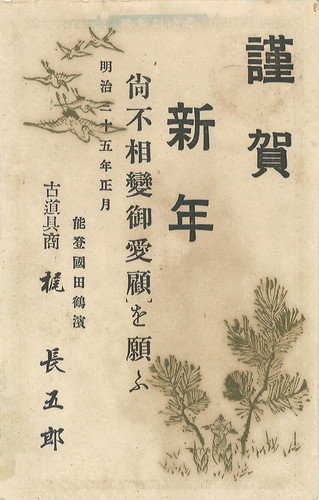 謹賀
新年
尙不相變御愛顧を願ふ
明治二十五年正月
能登國田鶴濱
古道具商 梶 長五郎